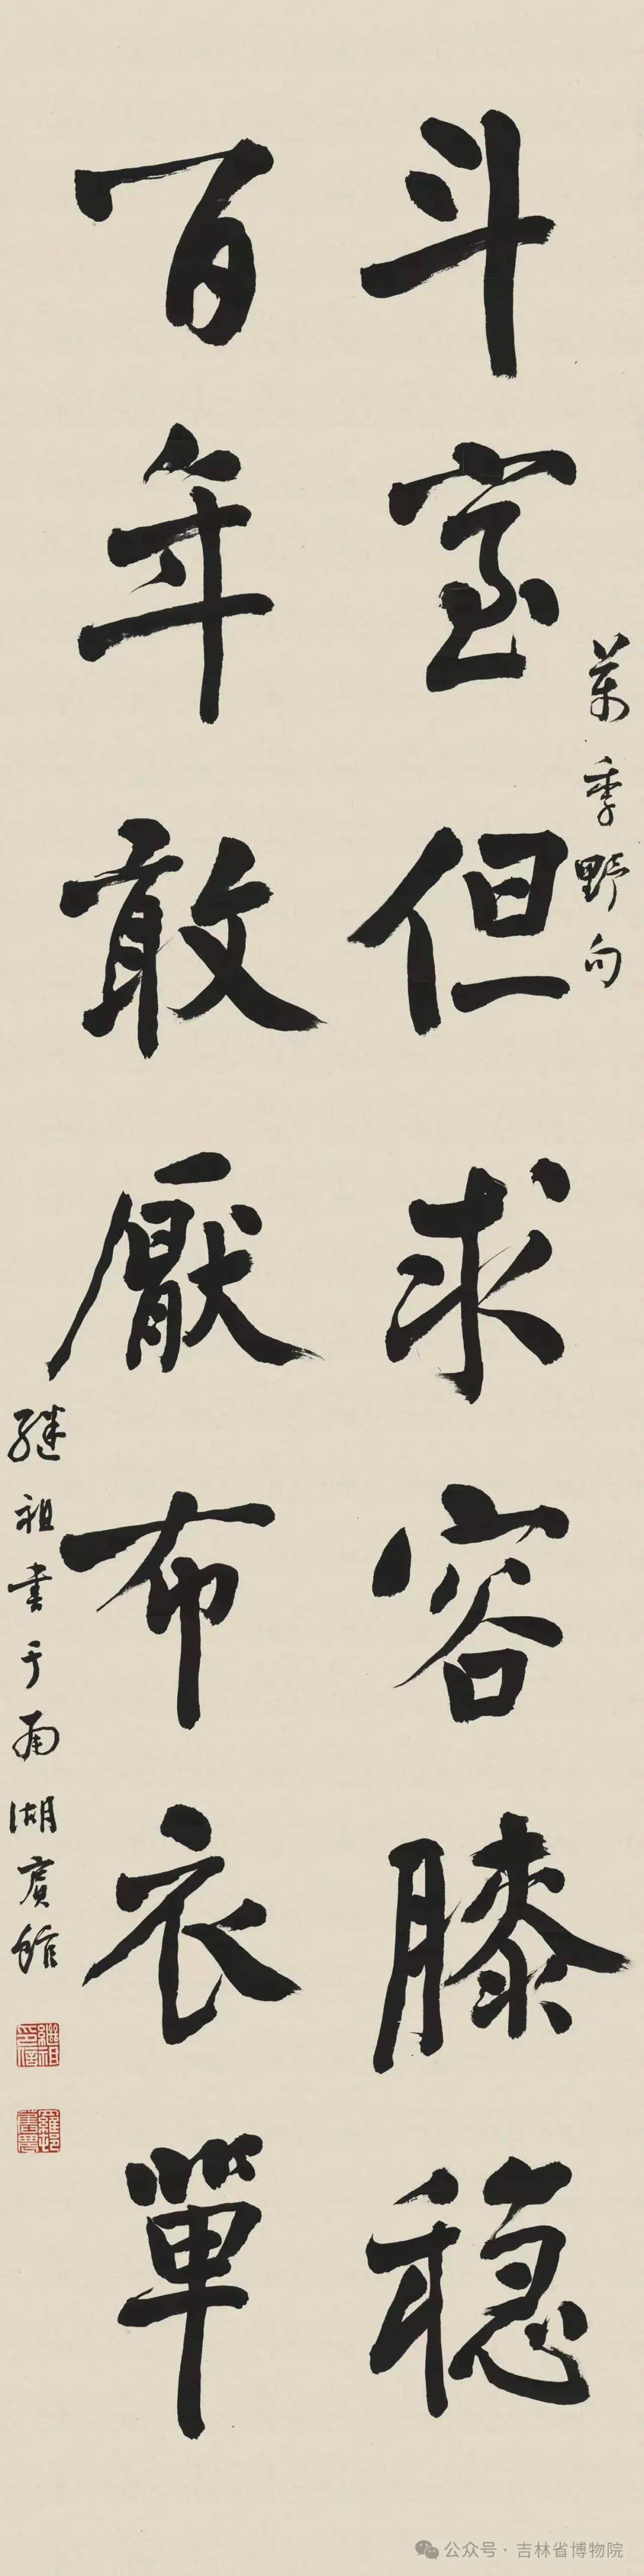 萬季野句
斗室但求容膝穩
百年敢厭布衣單
继祖書于南湖賓館
繼祖
羅邨舊農
公众号·吉林省博物院